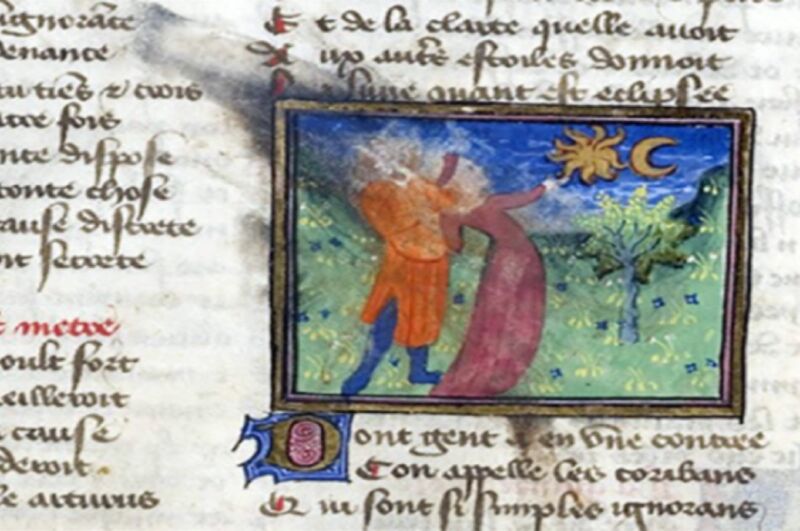 ignorance
venance
tu tiers & trois
autre fois
dispose
toute chose
cause discrete
secrete
metre
oult fort
eilleroit
cause
detoit
le arturus
Et de la clarte quelle avoit
aux autres estoiles donnoit
la lune quant est eclipsee
Dont gent a en une contree
Con appelle les coribans
Qui sont si simples ignorans